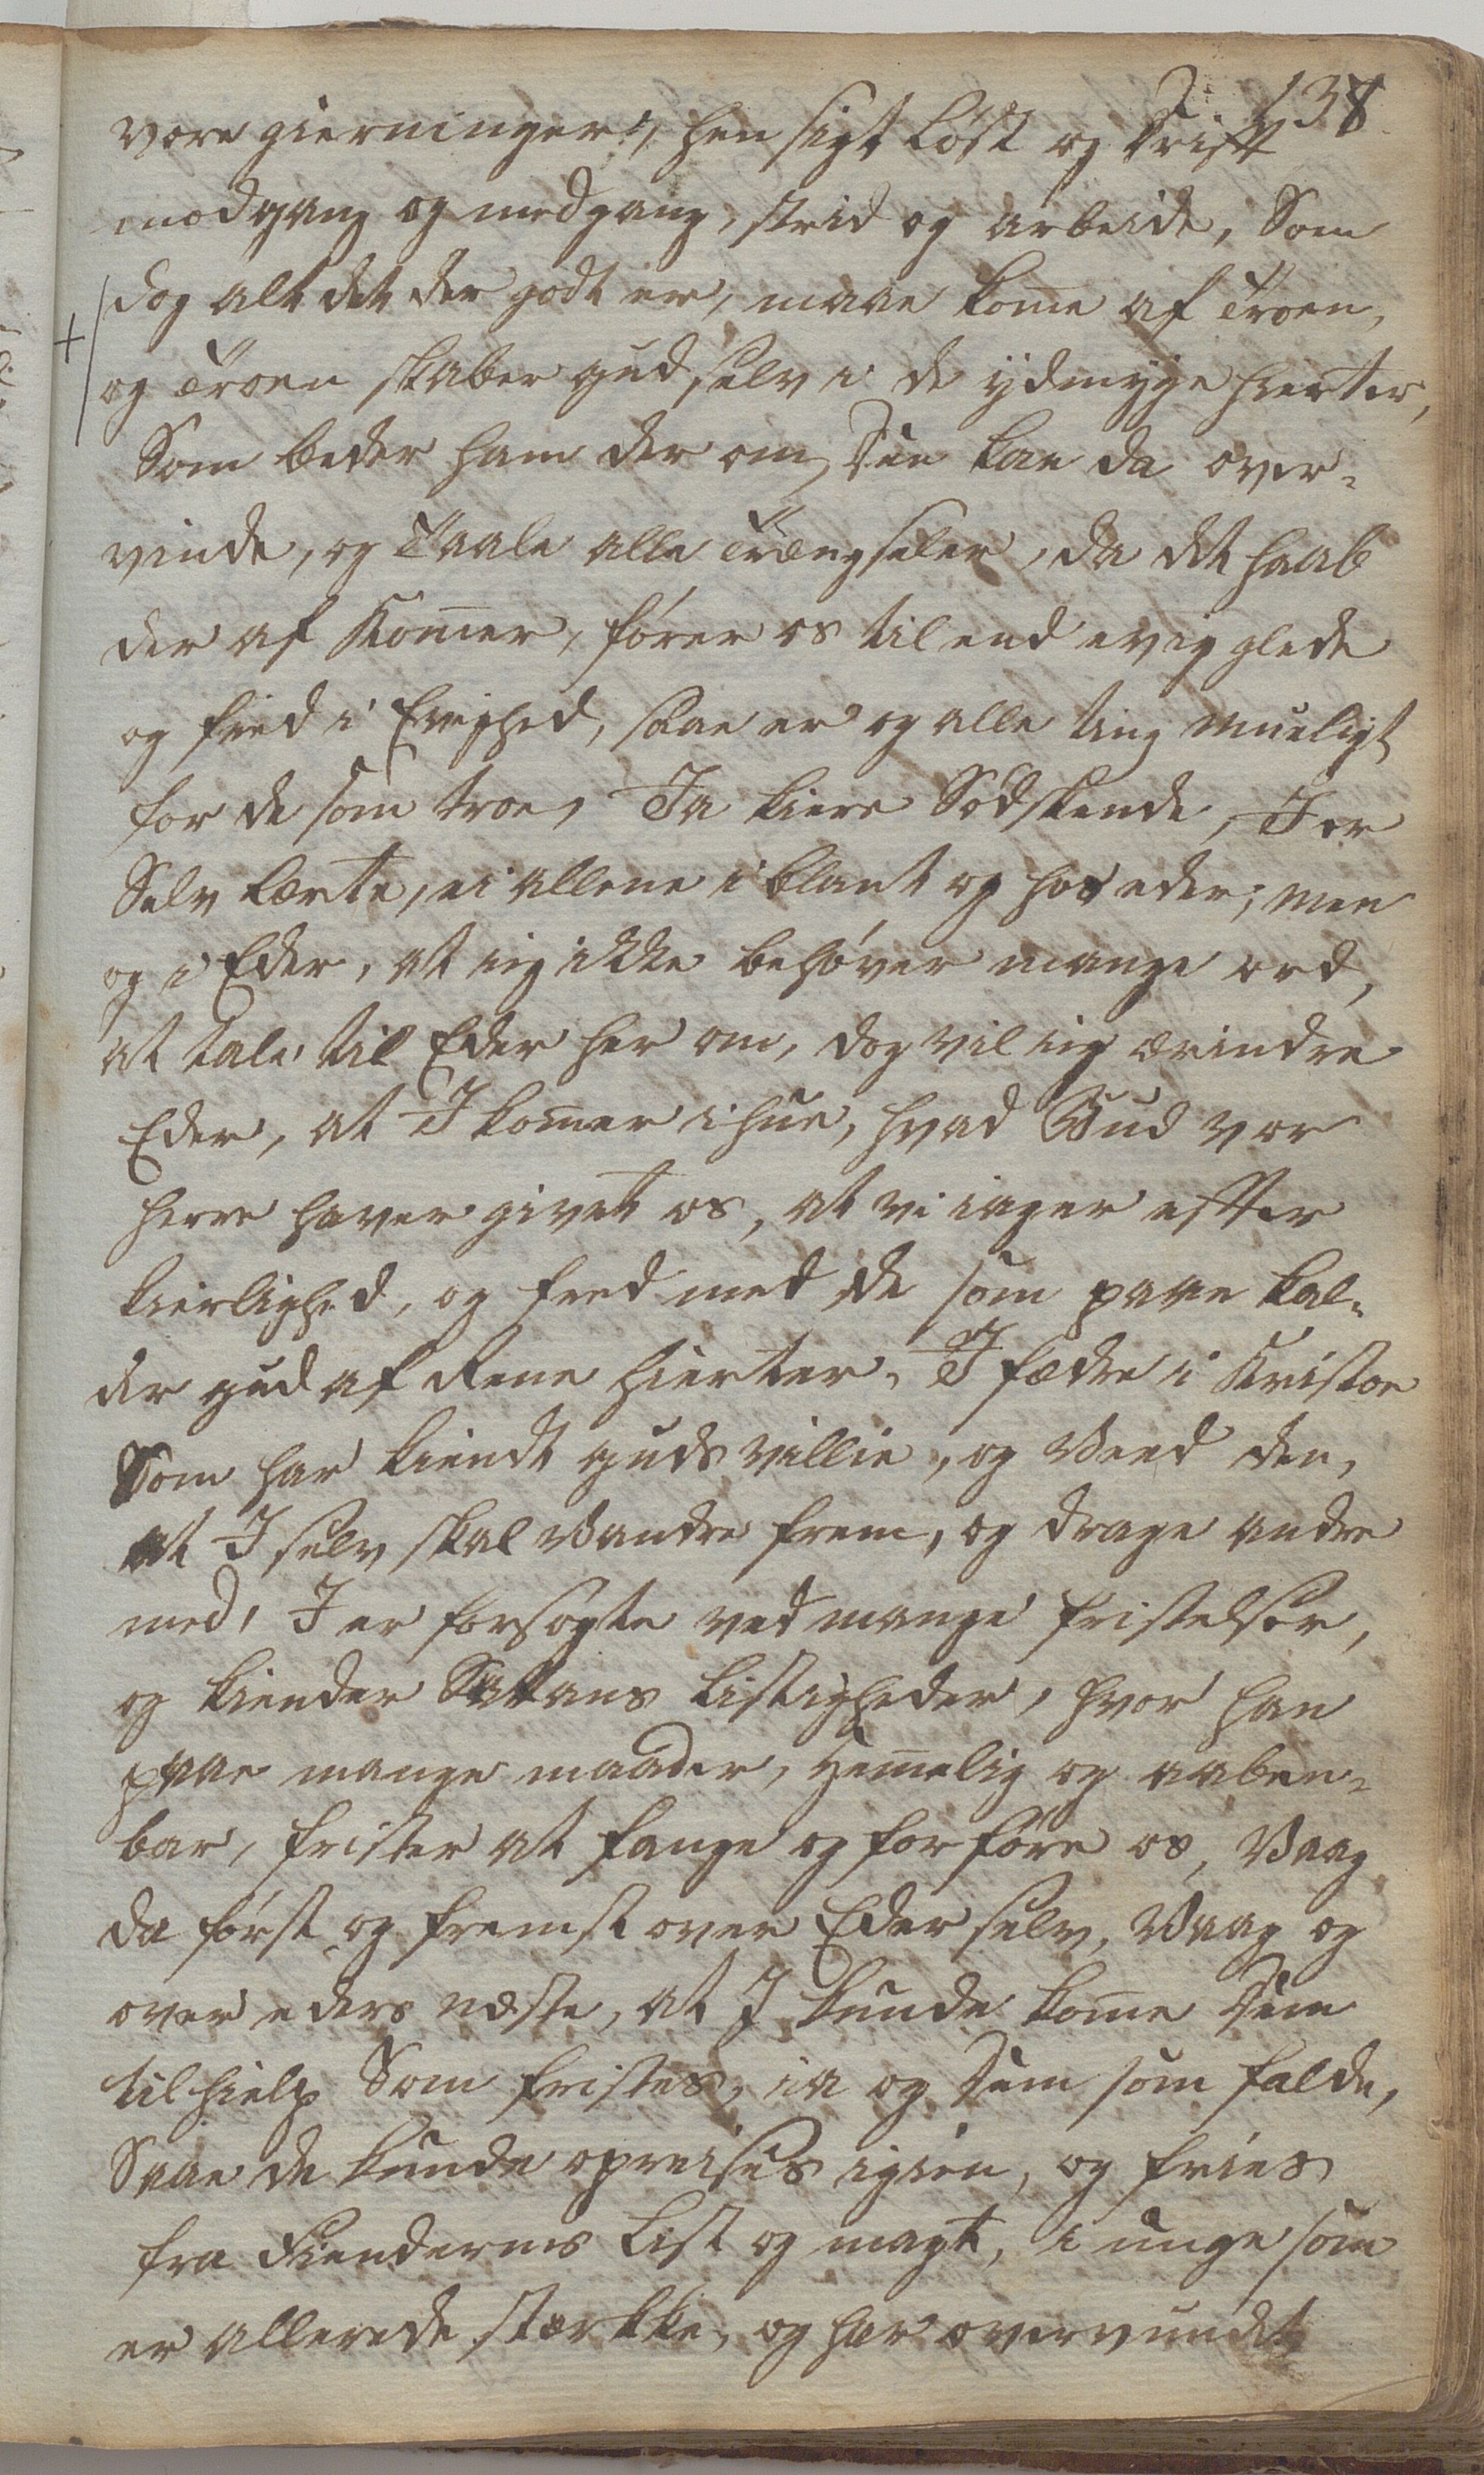 138
vore gierninger, hensigt Løst og Drift
modgang og medgang, strid og arbeide, Som
dog alt det der godt er, maae kome af Troen,
+ og Troen skaber gud selv i de ydmyge hierter,
Som beder ham der om, den kan da over-
vinde, og Taale alle Trængseler, da det haab
der af Komer, fører os til end evig glede
og fred i Evighed, saae er og alle ting mueligt
for de som troe, Ja kiere Sødskende, I er
Selv lærte, ei allene i blant og hos eder; men
og i Eder, at iig ikke behøver mange ord,
at tale til Eder her om, dog vil iig erindre
Eder, at I komer ihue, hvad Gud vor
herre haver givet os, at vi iager efter
kierlighed, og fred med de som paae kal-
der gud af Rene hierter, I fædre i Kristoe
Som har kiendt guds villie, og Veed den,
at I selv skal Vandre frem, og drage andre
med, I er forsøgte ved mange fristelser,
og kiender Satans listigheder, hvor han
paae mange maader, hemelig og aaben-
bar, frister at fange og forføre os, Vaag
da først og fremst over Eder selv, Vaag og
over eders næste, at I kunde kome dem
til hielp Som fristes, ia og dem som falde,
Saae de kunde opreises igien, og fries
fra Fienderens List og magt, i unge som
er allerede stærkke, og har overvundet